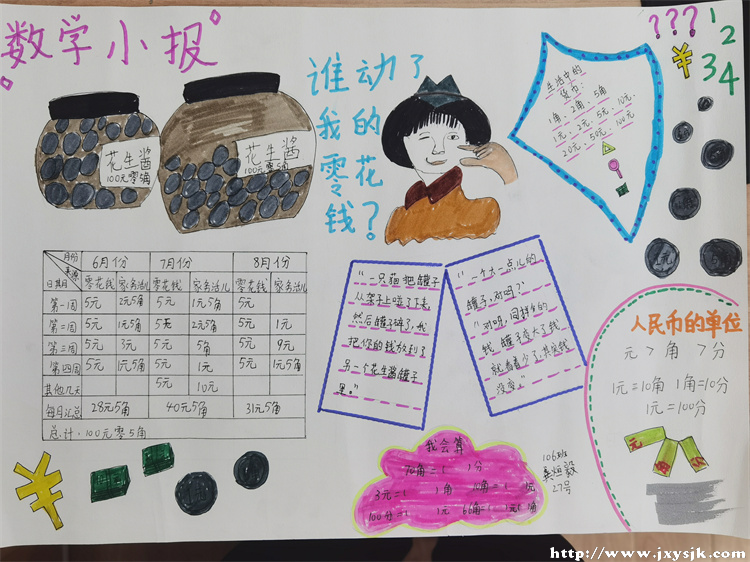 数学小报
谁动了
我的
零花
钱？
花生酱
100元零5角
花生酱
100元零5角
生活中的
货币：
1角、2角、5角
1元、2元、5元、10元、
20元、50元、100元
???
¥
1
2
3
4
月份 来源 日期 6月份 7月份 8月份
零花钱 家务活儿 零花钱 家务活儿 零花钱 家务活儿
第一周 5元 2元5角 5元 1元5角 5元
第二周 5元 1元5角 5元 2元5角 5元 1元
第三周 5元 3元 5元 5角 5元 9元
第四周 5元 1元5角 5元 1元 5元 1元5角
其他几天 5元 10元
每月汇总 28元5角 40元5角 31元5角
总计：100元零5角
“一只猫把罐子
从架子上
然后罐子碎了，我
把你的钱放到了
另一个花生酱罐子
里。”
“一个大一点儿的
罐子，对吗？”
“对呀，同样多的
钱，罐子变大了，钱
就看着少了，其实钱
没变。”
人民币的单位
元＞角＞分
1元=10角 1角=10分
1元=100分
元
¥
我会算
70角=( )分
3元=( )角 10角=( )元
100分=( )元 66角=( )元( )角
106班
龚烜毅
27号
http://www.jxysjk.com